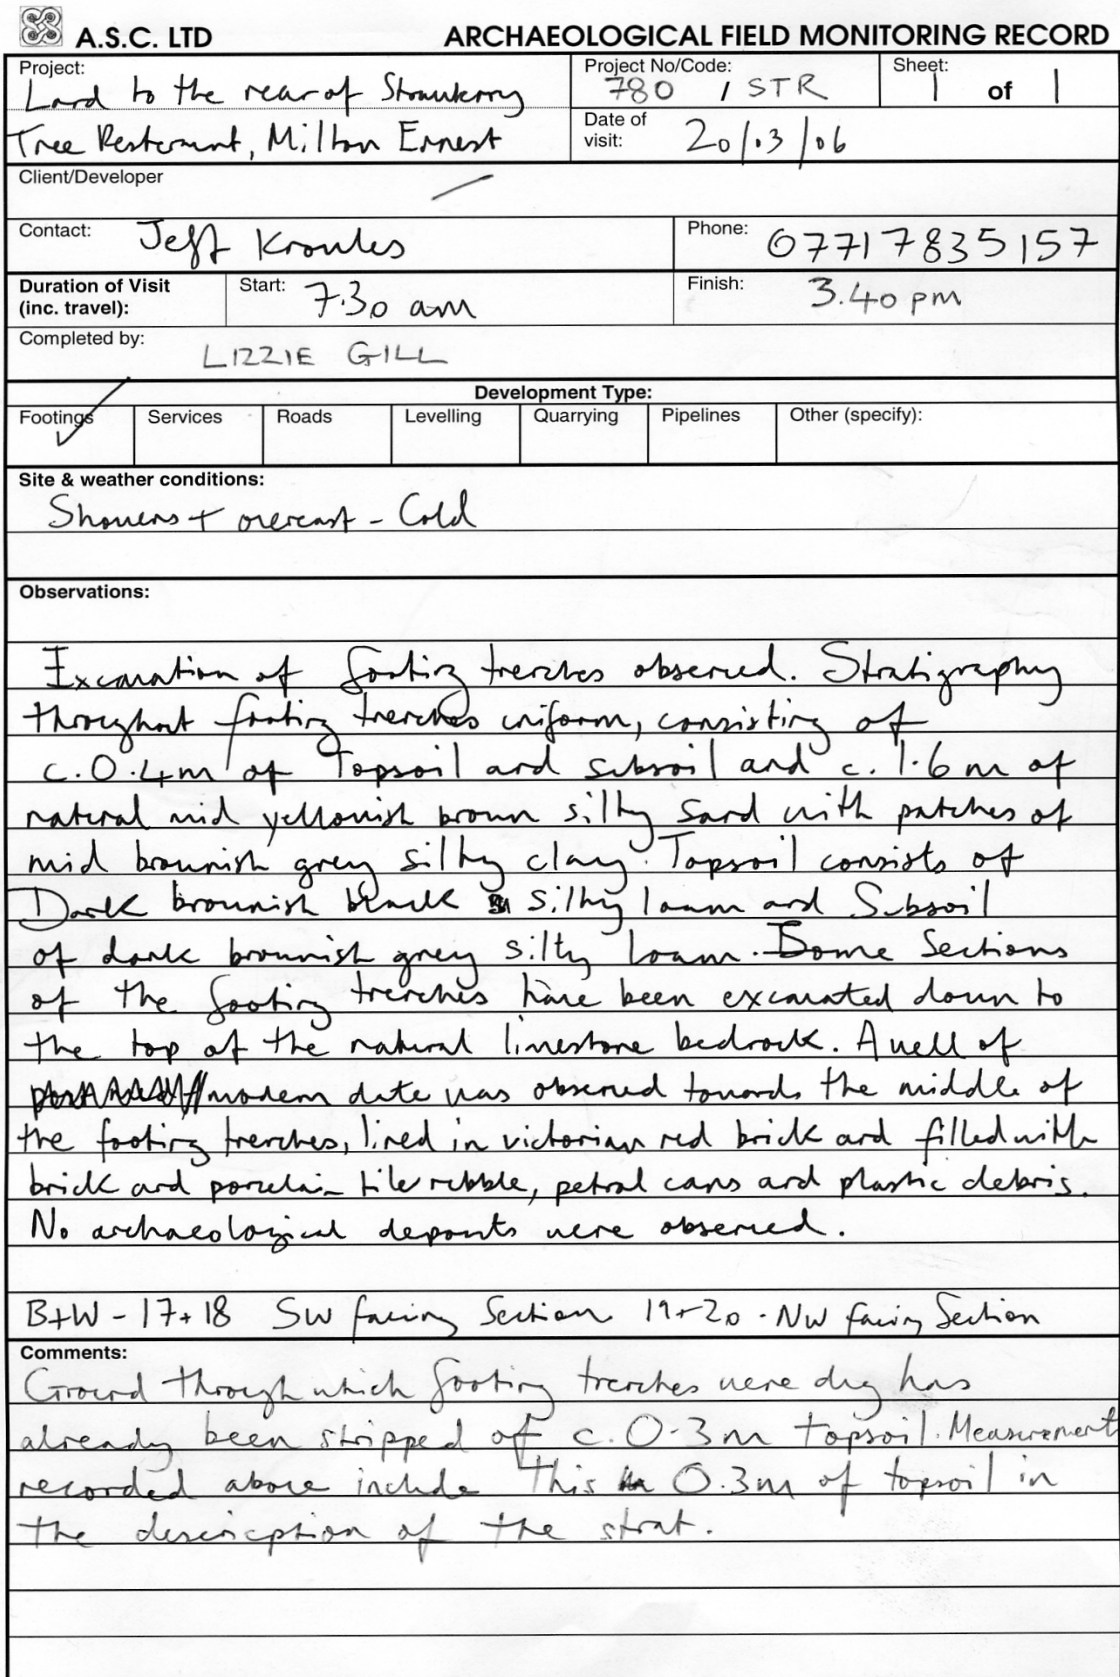 A.S.C. LTD ARCHAEOLOGICAL FIELD MONITORING RECORD
Project: Land to the rear of Strawberry
Tree Restaurant, Milton Ernest
Project No/Code: 780 / STR
Sheet: 1 of 1
Date of visit: 20/03/06
Client/Developer —
Contact: Jeff Knowles
Phone: 07717835157
Duration of Visit (inc. travel):
Start: 7.30 am
Finish: 3.40 pm
Completed by: LIZZIE GILL
Development Type:
Footings ✓ Services Roads Levelling Quarrying Pipelines Other (specify):
Site & weather conditions:
Showers + overcast - Cold
Observations:
Excavation of footing trenches observed. Stratigraphy
throughout footing trenches uniform, consisting of
c.0.4m of Topsoil and subsoil and c. 1.6m of
natural mid yellowish brown silty sand with patches of
mid brownish grey silty clay. Topsoil consists of
Dark brownish black silty loam and Subsoil
of dark brownish grey silty loam. Some Sections
of the footing trenches have been excavated down to
the top of the natural limestone bedrock. A well of
modern date was observed towards the middle of
the footing trenches, lined in victorian red brick and filled with
brick and porcelain tile rubble, petrol cans and plastic debris.
No archaeological deposits were observed.
B+W - 17+18 SW facing Section 19+20 - NW facing Section
Comments:
Ground through which footing trenches were dug has
already been stripped of c.0.3m topsoil. Measurements
recorded above include this 0.3m of topsoil in
the description of the strat.